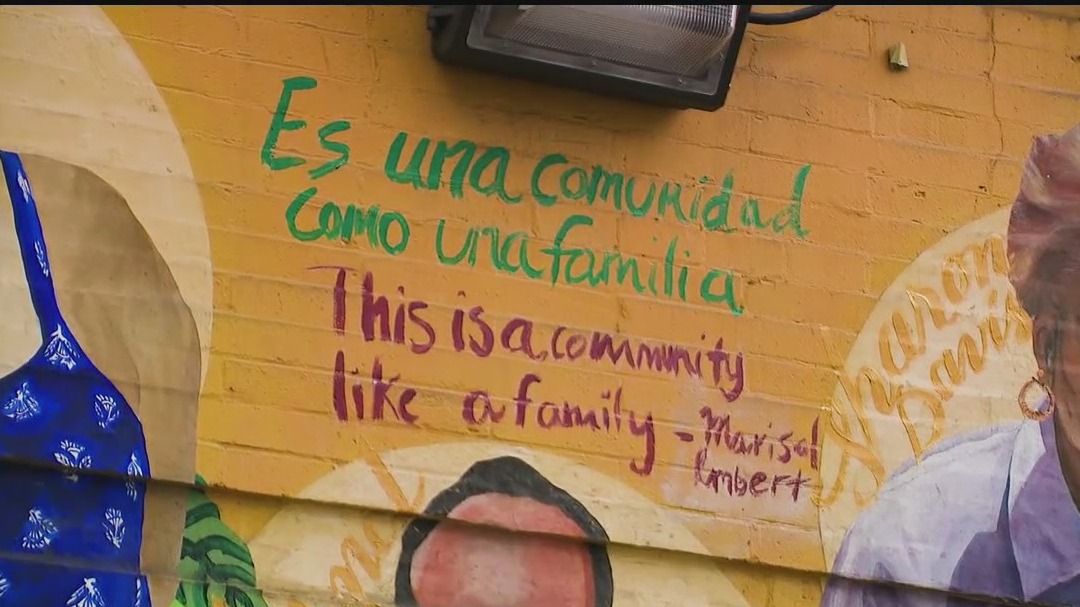 Es una comunidad
como una familia
This is a community
like a family - Marisol
Imbert
Sharon
Davis